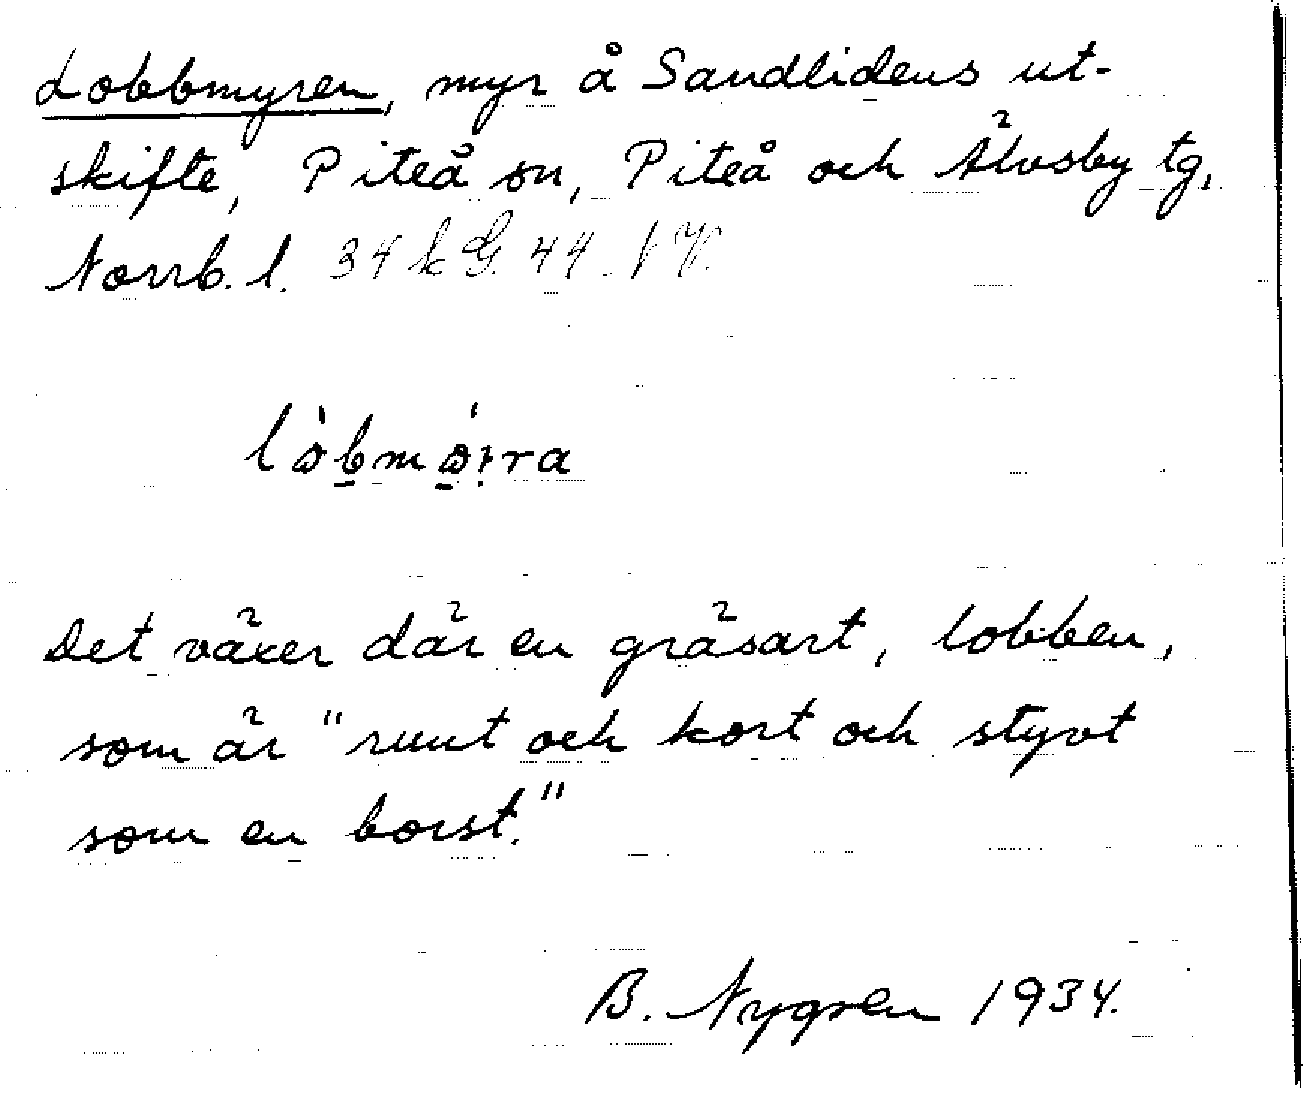 Lobbmyren, myr å Sandlidens ut-
skifte, Piteå sn, Piteå och Älvsby tg,
Norrb. l. 34 k G. 44. N V.
Det växer där en gräsart, lobben,
som är "runt och kort och styvt
som en borst."
B. Nygren 1934.